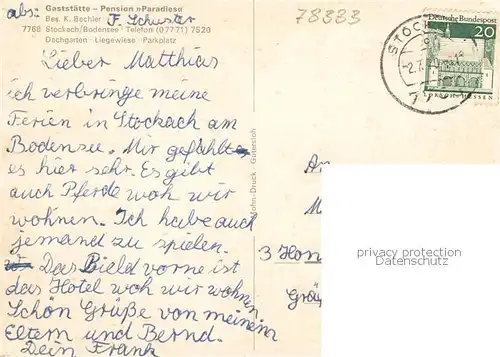 abs: Gaststätte – Pension »Paradies«
Bes. K. Bechler F. Schuster
7768 Stockach/Bodensee · Telefon (07771) 7520
Dachgarten · Liegewiese · Parkplatz
78333
Lieber Matthias
ich verbringe meine
Ferien in Stockach am
Bodensee. Mir gefählt
es hier sehr. Es gibt
auch Pferde woh wir
wohnen. Ich habe auch
jemand zu spielen.
Das Bield vorne ist
das Hotel woh wir wohnen
Schön Grüße von meinem
Eltern und Bernd.
Dein Frank
Deutsche Bundespost
20
LORSCH · HESSEN
STOCK
77
An
M
3 Han
privacy protection
Datenschutz